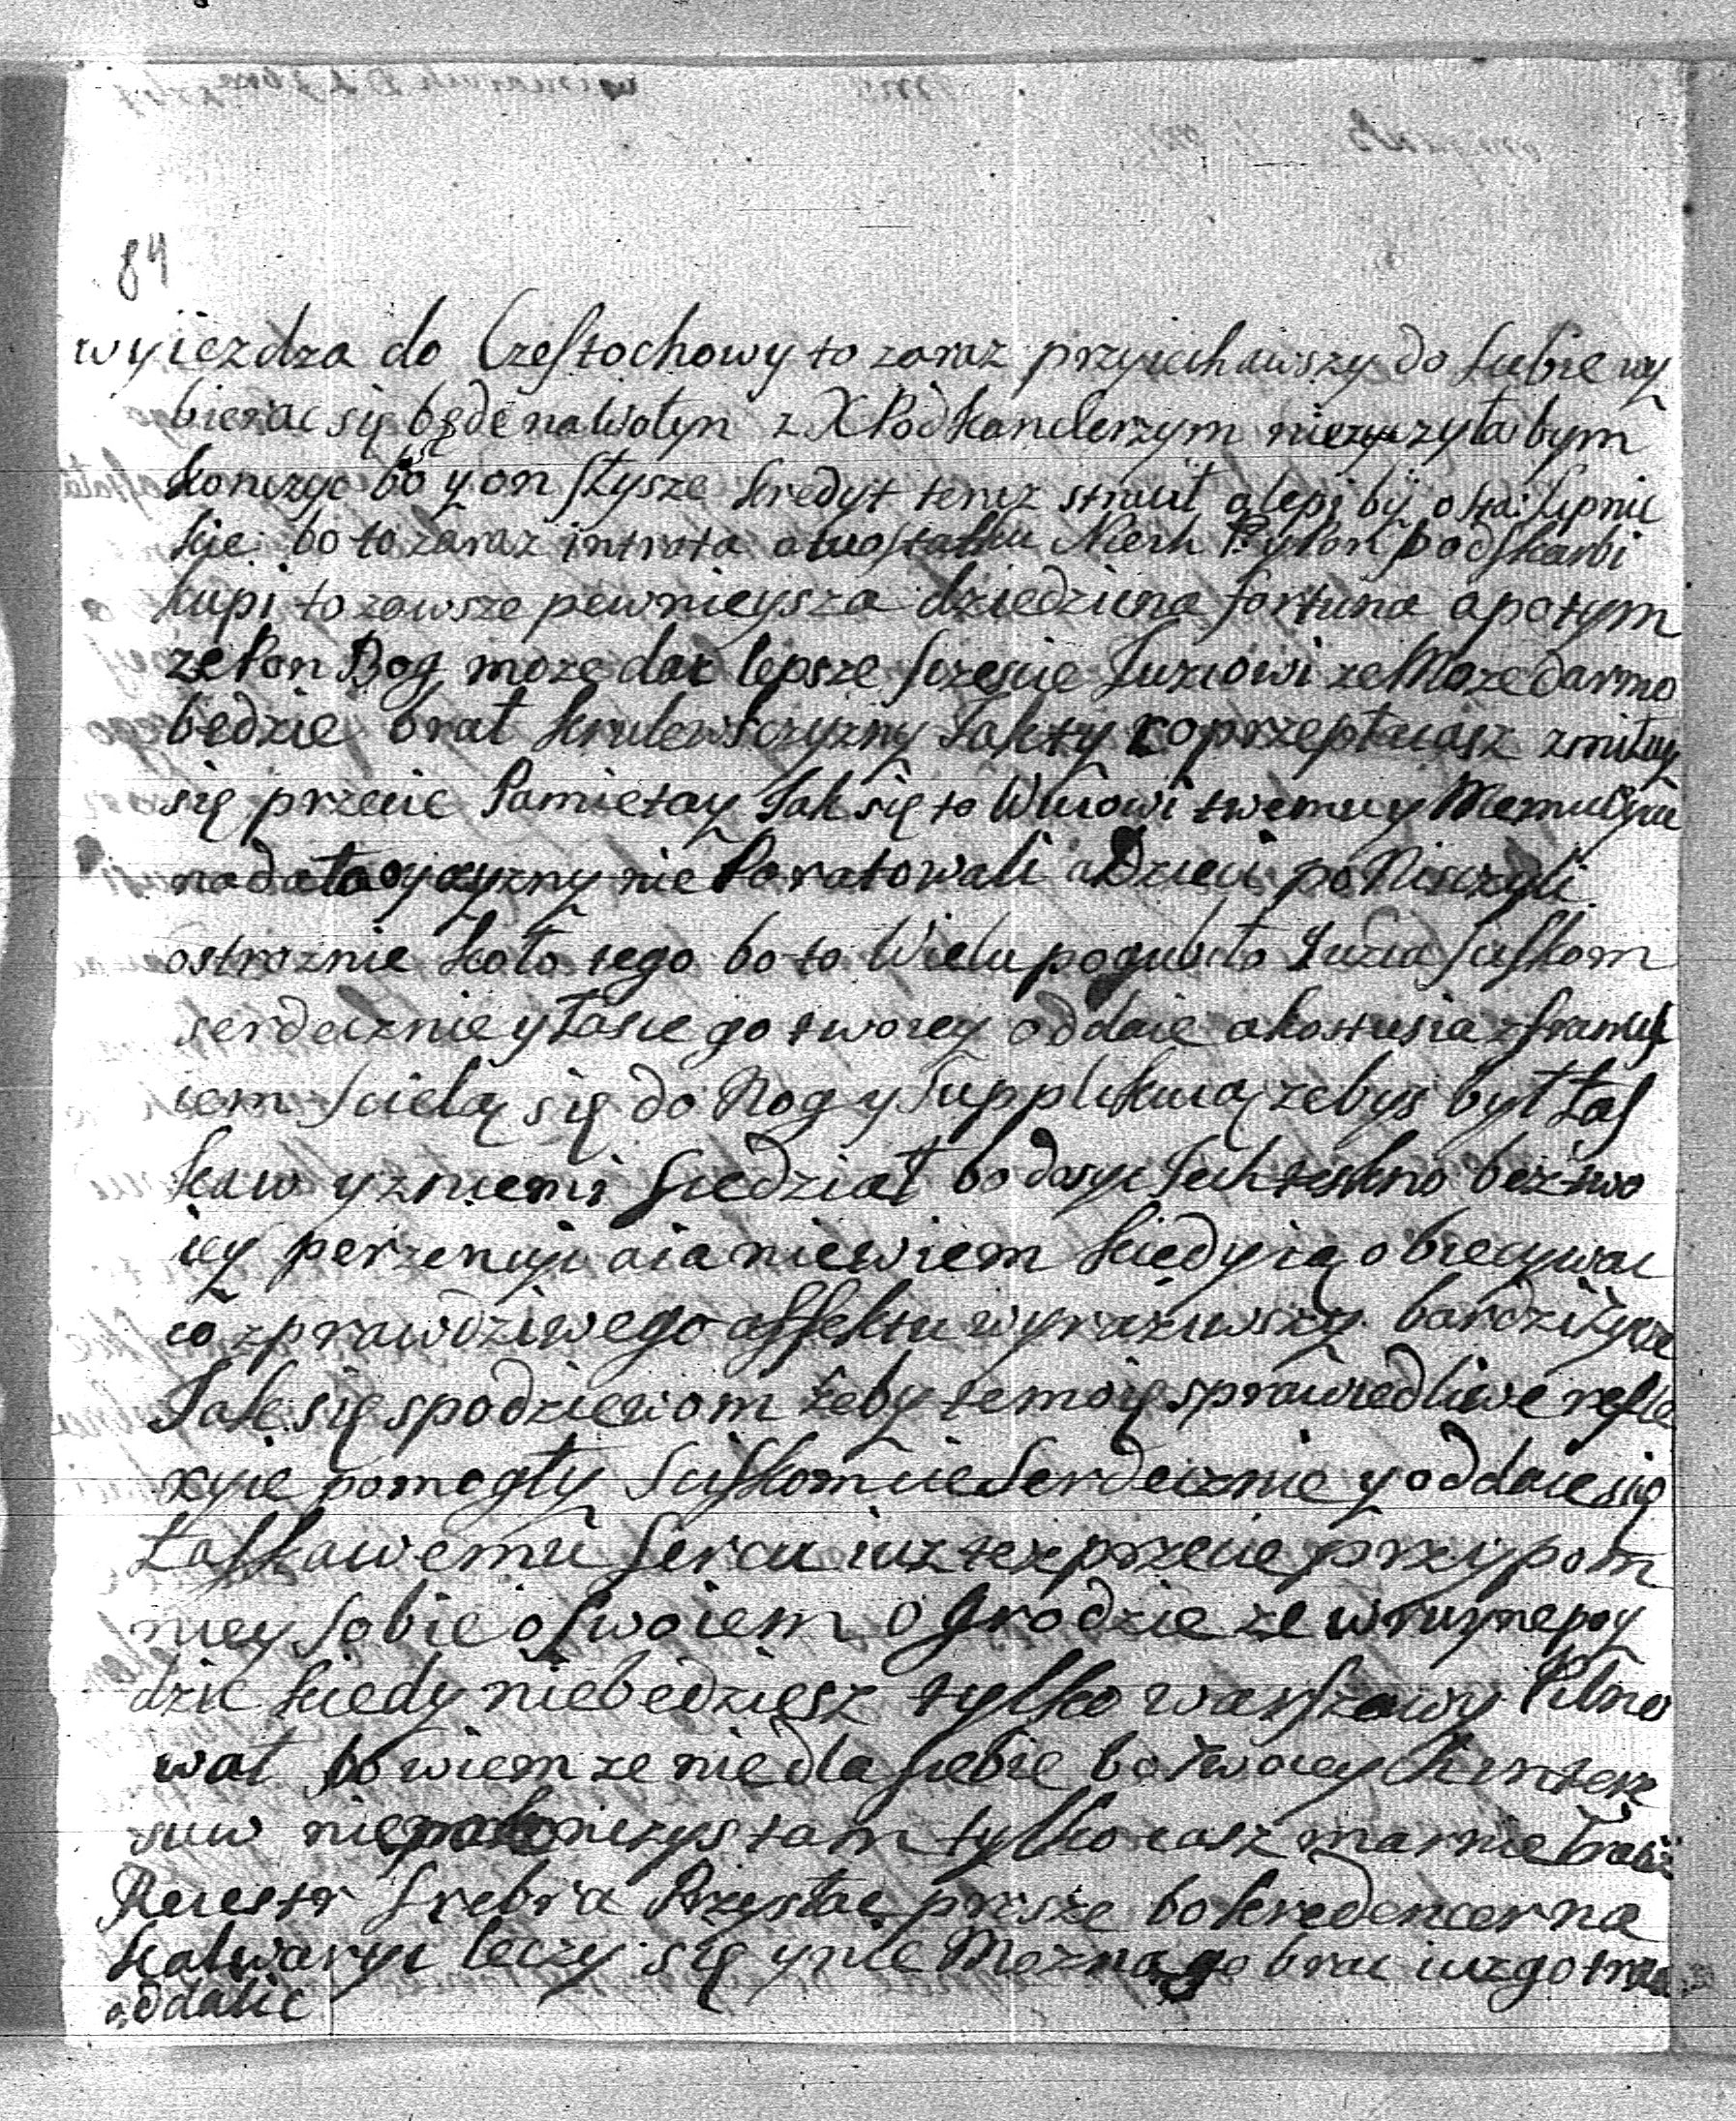 84
wyiezdza do Czestochowy to zaraz przyiechawszy do siebie wy
bierac się będe na Wołyn z X Podkanclerzym nie zyczyłabym
konczyc bo y on słysze kredyt teraz straiił a lepi by o sta: Lipnic
kie bo to zaraz intrata a w ostatku Niech P: Pylon Podskarbi
kupi to zawsze pewnieysza dziedziczna fortuna a potym
ze Pan Bog moze dac lepsze sczęscie Juziowi ze Moze darmo
będzie brał krulewsczyzny Jak ty co przepłacasz zmiłuy
się przecie Pamietay Jak się to Wuiowi twemu y Memu Oycu
nadało oyczyzny nie Poratowali a Dzieci po Nisczyli
ostroznie koło tego bo to Wielu pogubiło Juzia sciskam
serdecznie y łasce go twoiey oddaie a kostusia z franus
iem scielą się do Nog y supplikuią zebys był łas
kaw y z niemi siedział bo dosyc Jech teskno bez two
iey perzencyi a ia nie wiem kiedy ią obiecywac
co z prawdziwego affektu wyraziwszy bardzi zycze
Jak się spodziewom zeby te moię sprawiedliwe refle
xyie pomogły sciskom cie serdecznie y oddaie się
łaskawemu sercu iuz tez przecie przy pom
niey sobie o swoiem ogrodzie ze w ruynę poy
dzie kiedy nie bedziesz tylko warszawy Pilno
wał bo wiem ze nie dla siebie bo twoiey interes
suw nie konczys tam tylko czasz marnie trawisz
Reiestr srebra Przysłac prosze bo kredencerna
kalwaryi leczy się y nie Mozna go brac iuz go trzeba
oddalic